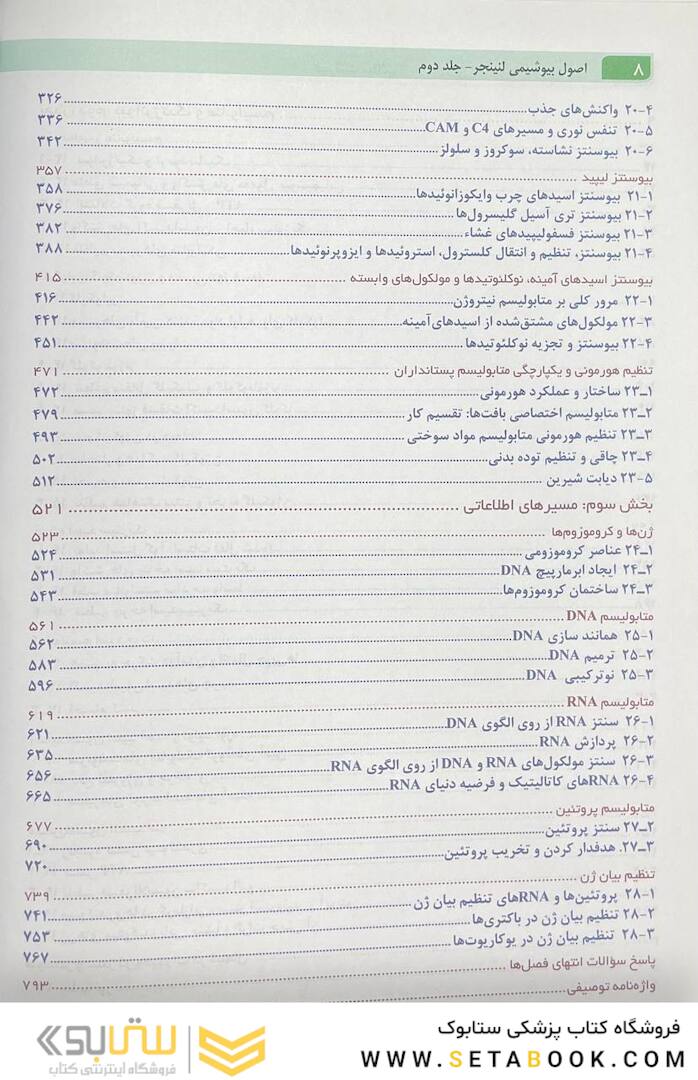 ۸ اصول بیوشیمی لنینجر – جلد دوم
۲۰-۴ واکنش‌های جذب ۳۲۶
۲۰-۵ تنفس نوری و مسیرهای C4 و CAM ۳۳۶
۲۰-۶ بیوسنتز نشاسته، سوکروز و سلولز ۳۴۲
بیوسنتز لیپید ۳۵۷
۲۱-۱ بیوسنتز اسیدهای چرب وایکوزانوئیدها ۳۵۸
۲۱-۲ بیوسنتز تری آسیل گلیسرول‌ها ۳۷۶
۲۱-۳ بیوسنتز فسفولیپیدهای غشاء ۳۸۲
۲۱-۴ بیوسنتز، تنظیم و انتقال کلسترول، استروئیدها و ایزوپرنوئیدها ۳۸۸
بیوسنتز اسیدهای آمینه، نوکلئوتیدها و مولکول‌های وابسته ۴۱۵
۲۲-۱ مرور کلی بر متابولیسم نیتروژن ۴۱۶
۲۲-۳ مولکول‌های مشتق‌شده از اسیدهای‌آمینه ۴۴۲
۲۲-۴ بیوسنتز و تجزیه نوکلئوتیدها ۴۵۱
تنظیم هورمونی و یکپارچگی متابولیسم پستانداران ۴۷۱
۲۳ـ۱ ساختار و عملکرد هورمونی ۴۷۲
۲۳ـ۲ متابولیسم اختصاصی بافت‌ها: تقسیم کار ۴۷۹
۲۳ـ۳ تنظیم هورمونی متابولیسم مواد سوختی ۴۹۳
۲۳ـ۴ چاقی و تنظیم توده بدنی ۵۰۲
۲۳-۵ دیابت شیرین ۵۱۲
بخش سوم: مسیرهای اطلاعاتی ۵۲۱
ژن‌ها و کروموزوم‌ها ۵۲۳
۲۴ـ۱ عناصر کروموزومی ۵۲۴
۲۴ـ۲ ایجاد ابرمارپیچ DNA ۵۳۱
۲۴ـ۳ ساختمان کروموزوم‌ها ۵۴۳
متابولیسم DNA ۵۶۱
۲۵-۱ همانند سازی DNA ۵۶۲
۲۵-۲ ترمیم DNA ۵۸۳
۲۵-۳ نوترکیبی DNA ۵۹۶
متابولیسم RNA ۶۱۹
۲۶-۱ سنتز RNA از روی الگوی DNA ۶۲۱
۲۶-۲ پردازش RNA ۶۳۵
۲۶-۳ سنتز مولکول‌های RNA و DNA از روی الگوی RNA ۶۵۶
۲۶-۴ RNAهای کاتالیتیک و فرضیه دنیای RNA ۶۶۵
متابولیسم پروتئین ۶۷۷
۲۷ـ۲ سنتز پروتئین ۶۹۰
۲۷ـ۳. هدفدار کردن و تخریب پروتئین ۷۲۰
تنظیم بیان ژن ۷۳۹
۲۸-۱ پروتئین‌ها و RNAهای تنظیم بیان ژن ۷۴۱
۲۸-۲ تنظیم بیان ژن در باکتری‌ها ۷۵۳
۲۸-۳ تنظیم بیان ژن در یوکاریوت‌ها ۷۶۷
پاسخ سؤالات انتهای فصل‌ها ۷۹۳
واژه‌نامه توصیفی
فروشگاه کتاب پزشکی ستابوک
WWW.SETABOOK.COM
ستابوک
فروشگاه اینترنتی کتاب